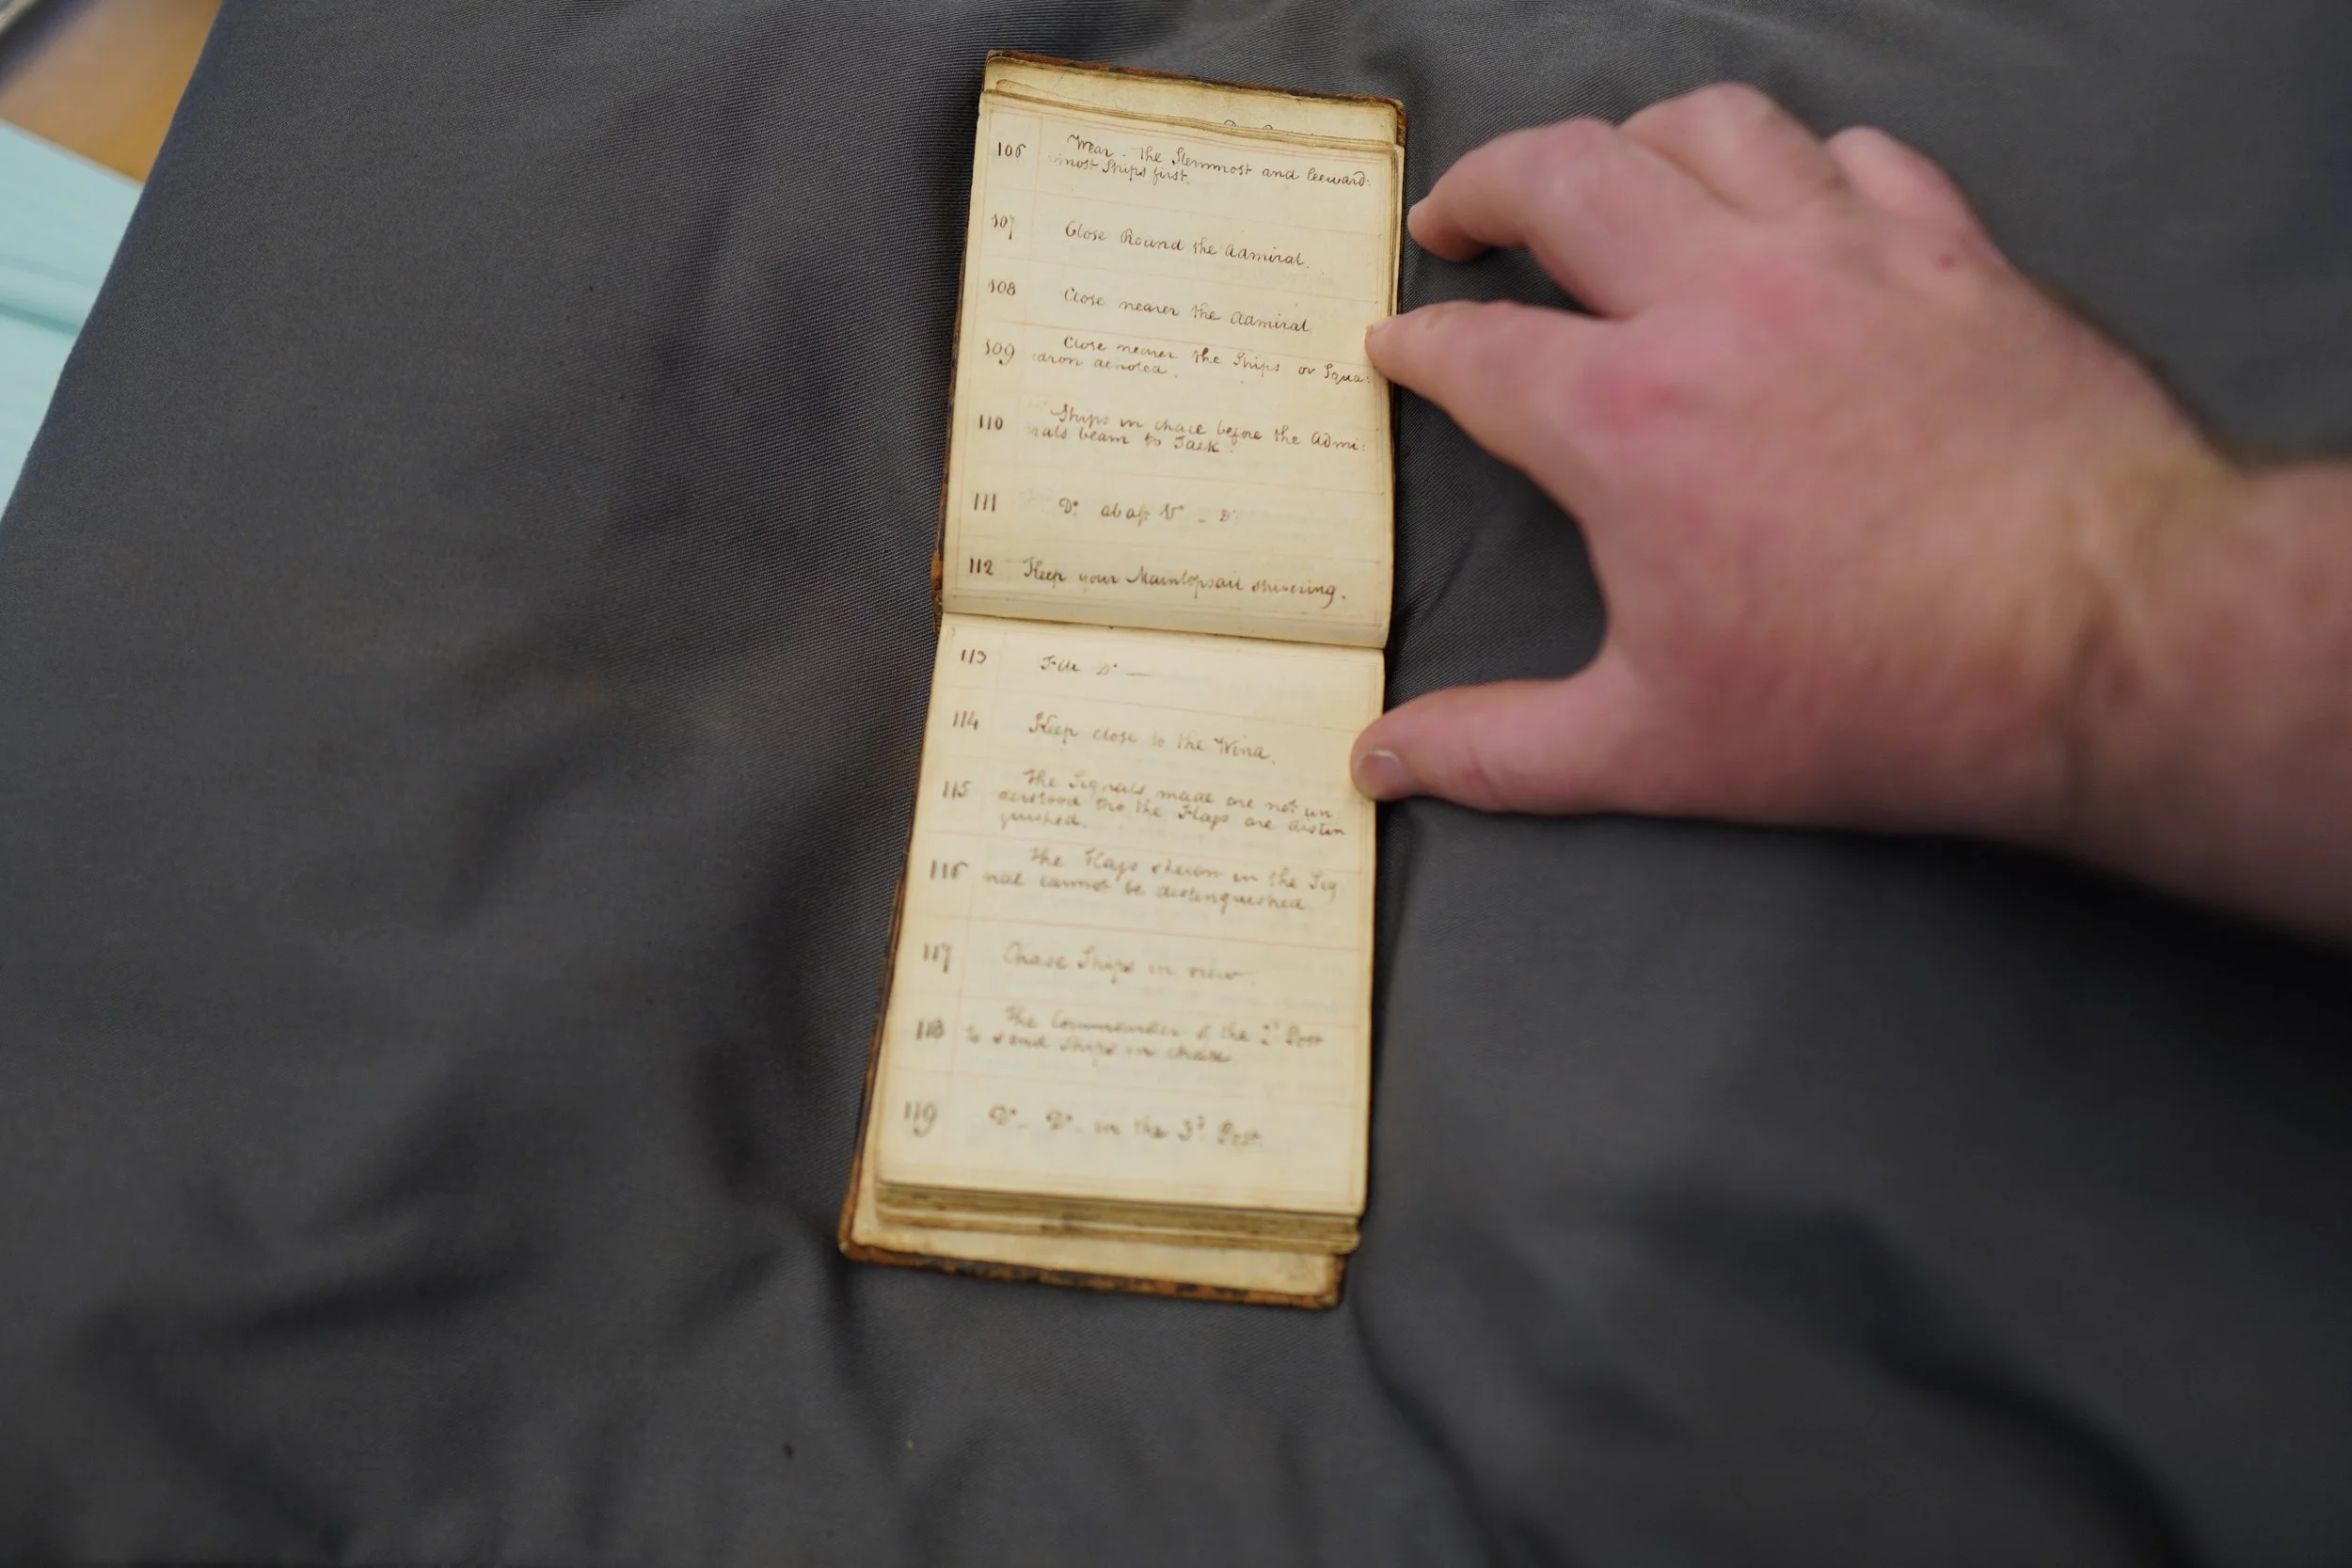 106 Wear - the Sternmost and Leeward:
most Ships first.
107 Close Round the Admiral.
108 Close nearer the Admiral.
109 Close nearer the Ships or Squa:
dron denoted.
110 Ships in chace before the Admi:
rals beam to Tack.
111 Do. abaft Do - Do.
112 Keep your Maintopsail shivering.
113 Fill Do —
114 Keep close to the Wind.
115 The Signals made are not un
derstood tho the Flags are distin
guished.
116 The Flags shewn in the Sig
nal cannot be distinguished.
117 Chase Ships in view
118 The Commander of the 2d Post
to send Ships in chase
119 Do - Do - in the 3d Post.